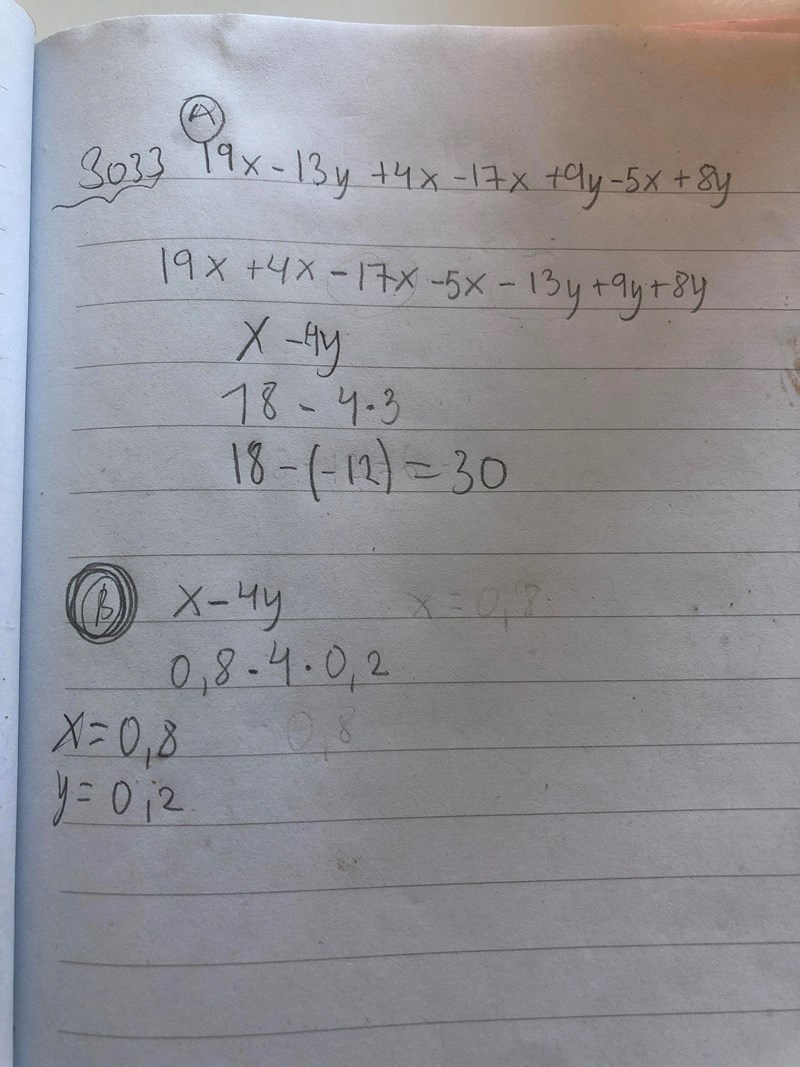 A
3033 19x - 13y + 4x - 17x + 9y - 5x + 8y
19x + 4x - 17x - 5x - 13y + 9y + 8y
x - 4y
18 - 4·3
18 - (-12) = 30
B x - 4y x = 0,8
0,8 - 4 · 0,2
x = 0,8 0,8
y = 0,2